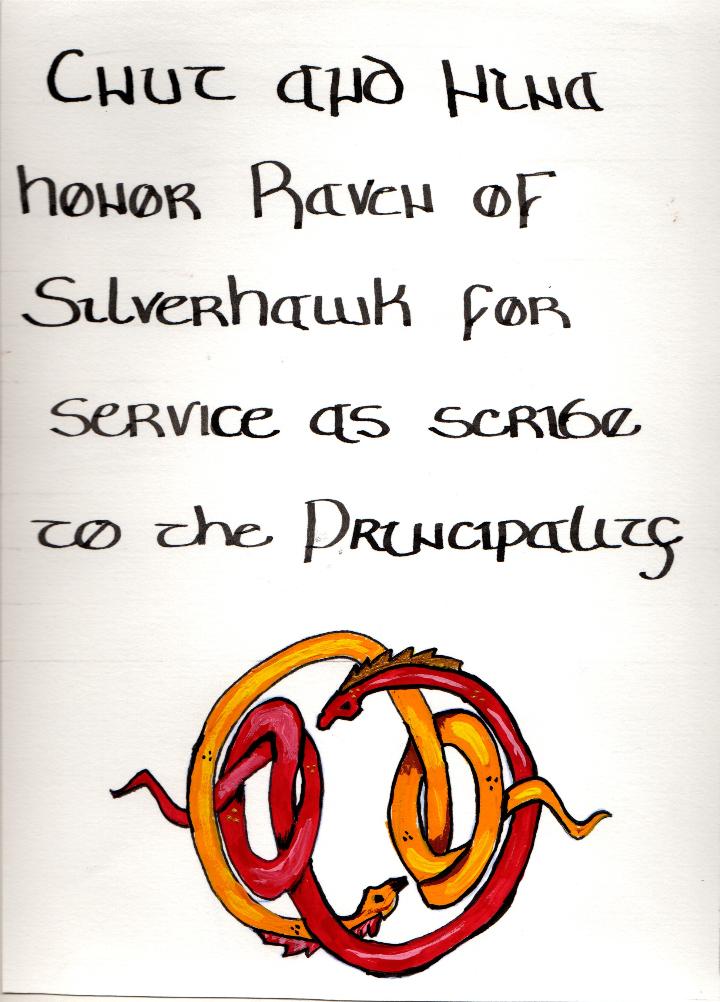 Cnut and Nina
honor Raven of
Silverhawk for
service as scribe
to the Principality